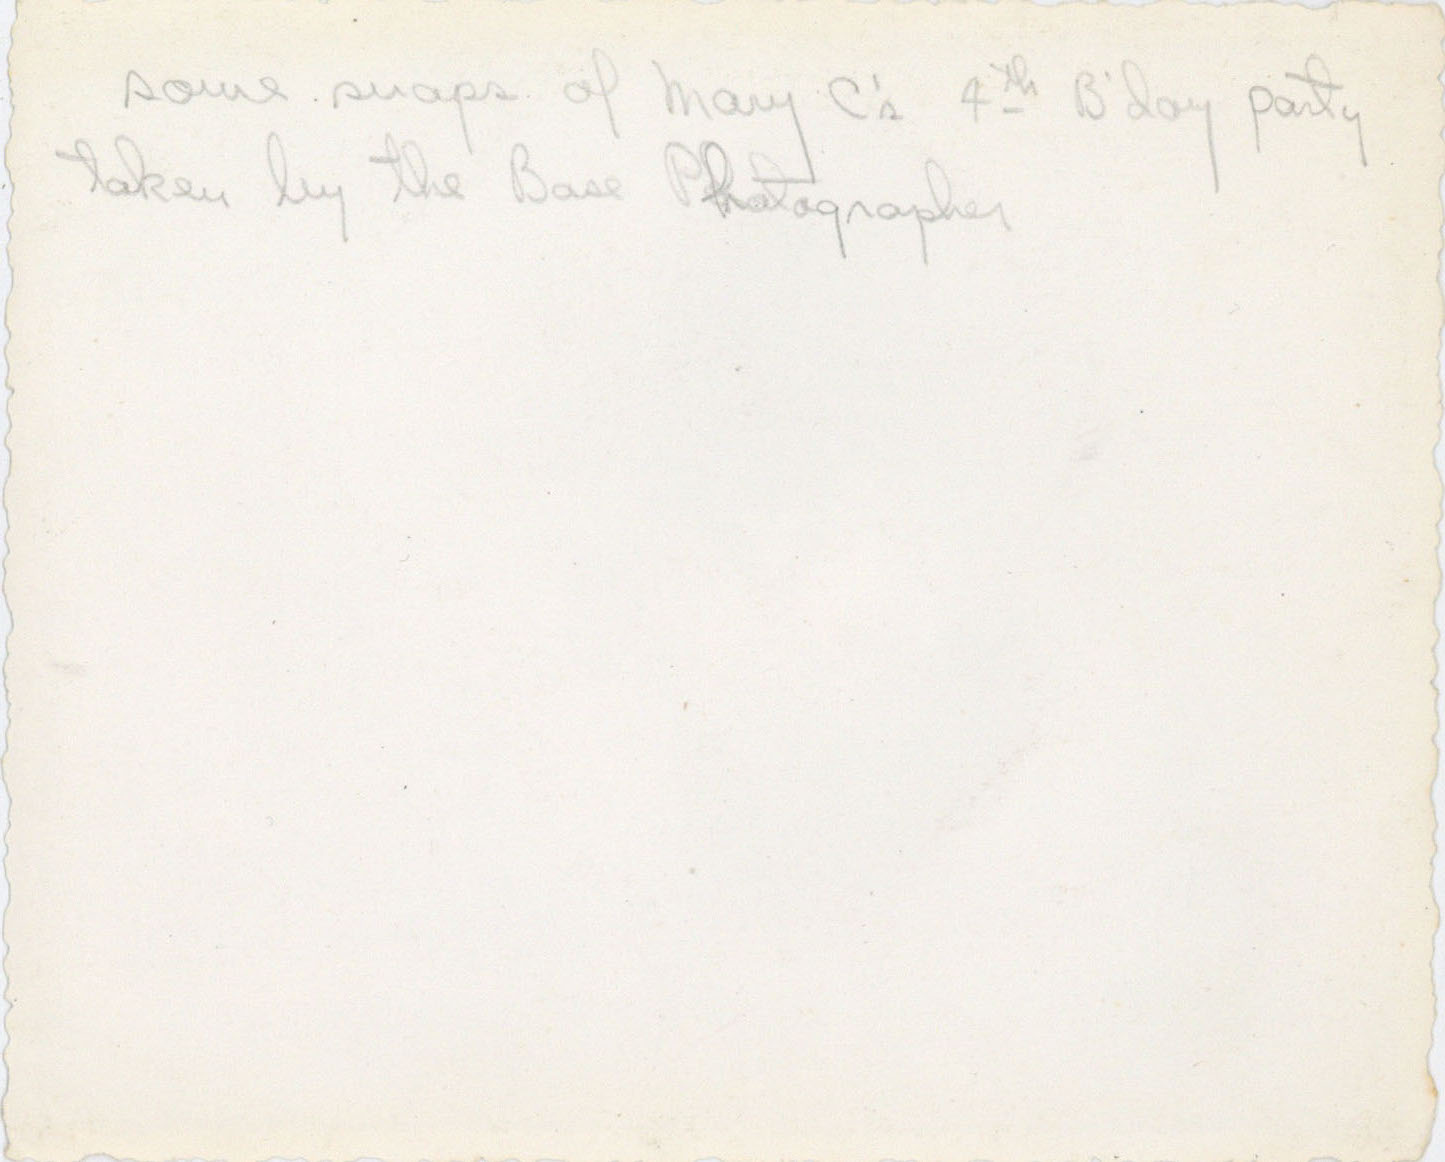 some snaps of Mary C's 4th B'day party
taken by the Base Photographer